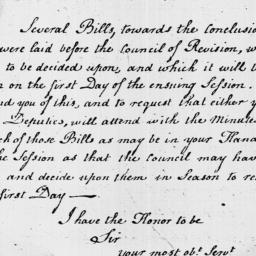 Several Bills, towards the Conclusio
were laid before the Council of Revision, w
to be decided upon, and which it will b
on the first Day of the ensuing Session.
nd you of this, and to request that either y
Deputies, will attend with the Minutes
ch of those Bills as may be in your Hand
he Session as that the Council may hav
and decide upon them in Season to re
first Day —
I have the Honor to be
Sir
your most obt. Servt